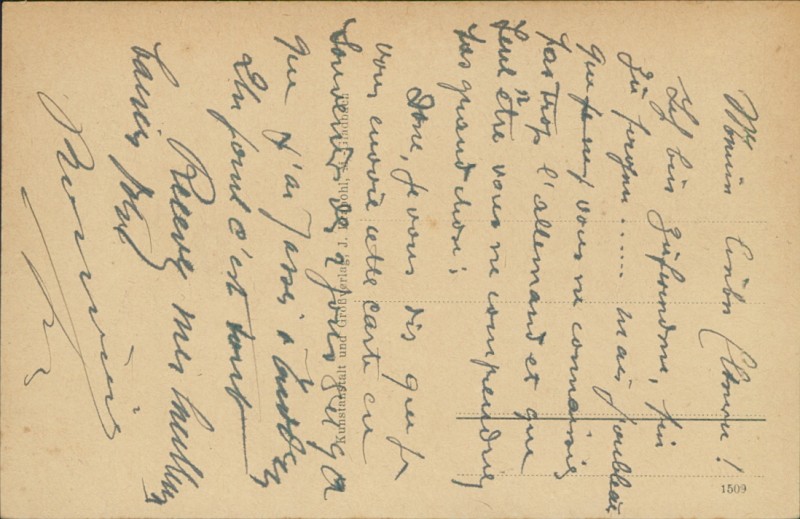 Meine lieben Eltern!
Ich bin zufrieden, hin
zu fragen...... mais j'oubliais
que vous ne connaissiez
pas trop l'allemand et que
peut être vous ne comprendrez
pas grand chose;
Donc, je vous dis que je
vous envoie cette carte en
souvenir des jours
que j'ai passé à
En forme c'est tout
Recevez mes meilleurs
baisers
Kunstanstalt und Großverlag, J.
1509